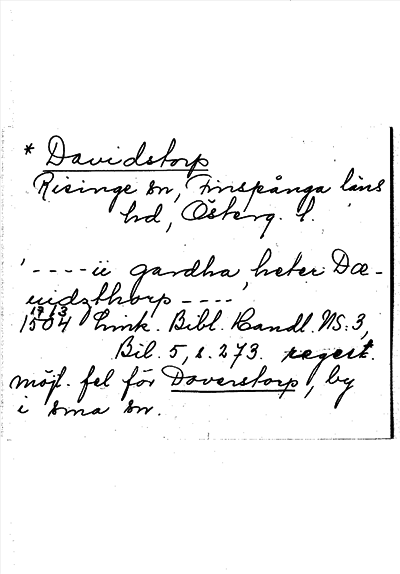 * Davidstorp
Risinge sn, Finspånga läns
hd, Österg. l.
'---- ii gardha, heter Dæ-
uidzthorp ----'
17/3
1504 Link. Bibl. Handl. NS: 3,
Bil. 5, s. 273. regest.
möjl. fel för Daverstorp, by
i sma sn.